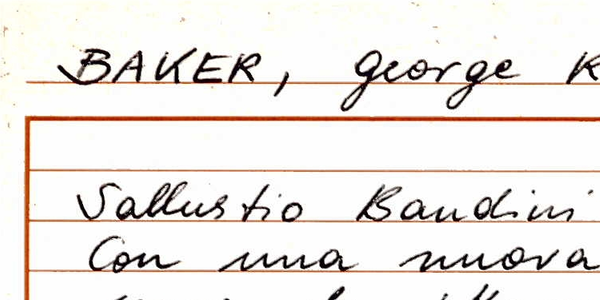 BAKER, George R
Sallustio Bandini
Con una nuova